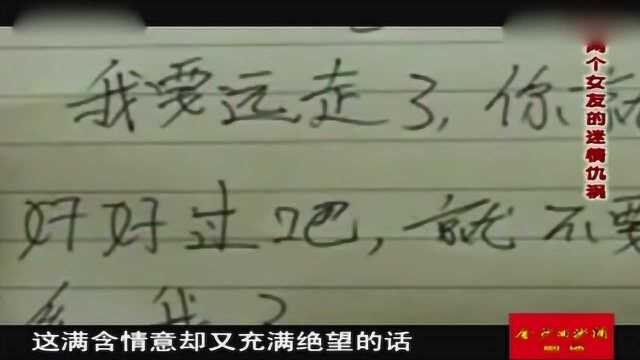 我要远走了,你就
好好过吧,就不要
两个女友的迷情仇祸
这满含情意却又充满绝望的话